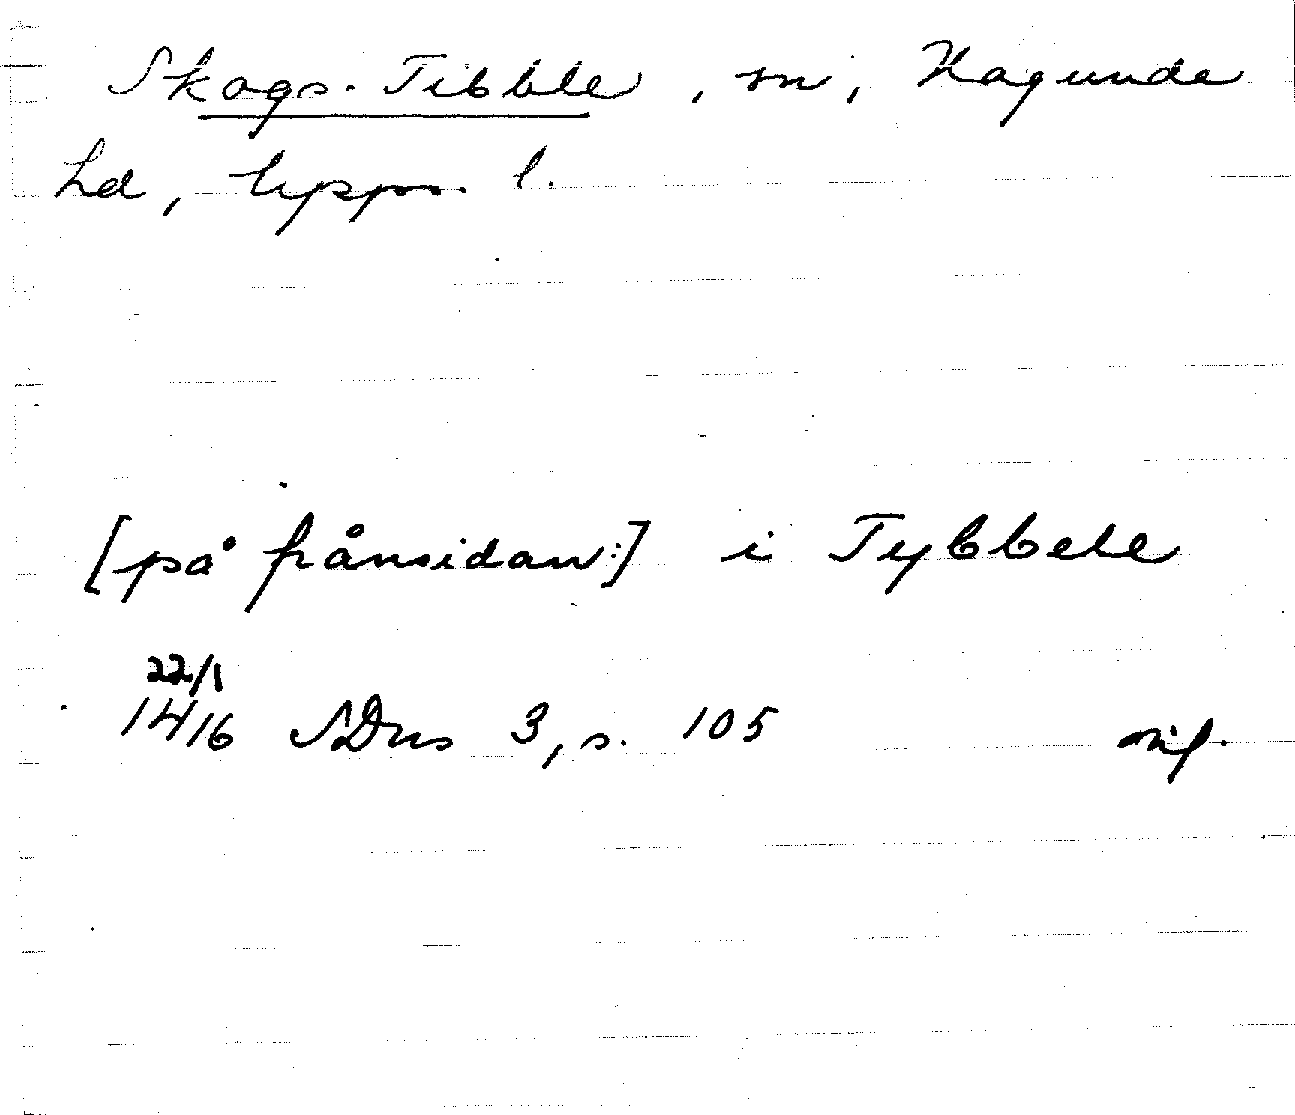 Skogs-Tibble, sn, Hagunde
hd, Upps. l.
[på frånsidan:] i Tybbele
22/1
1416 SDns 3, s. 105